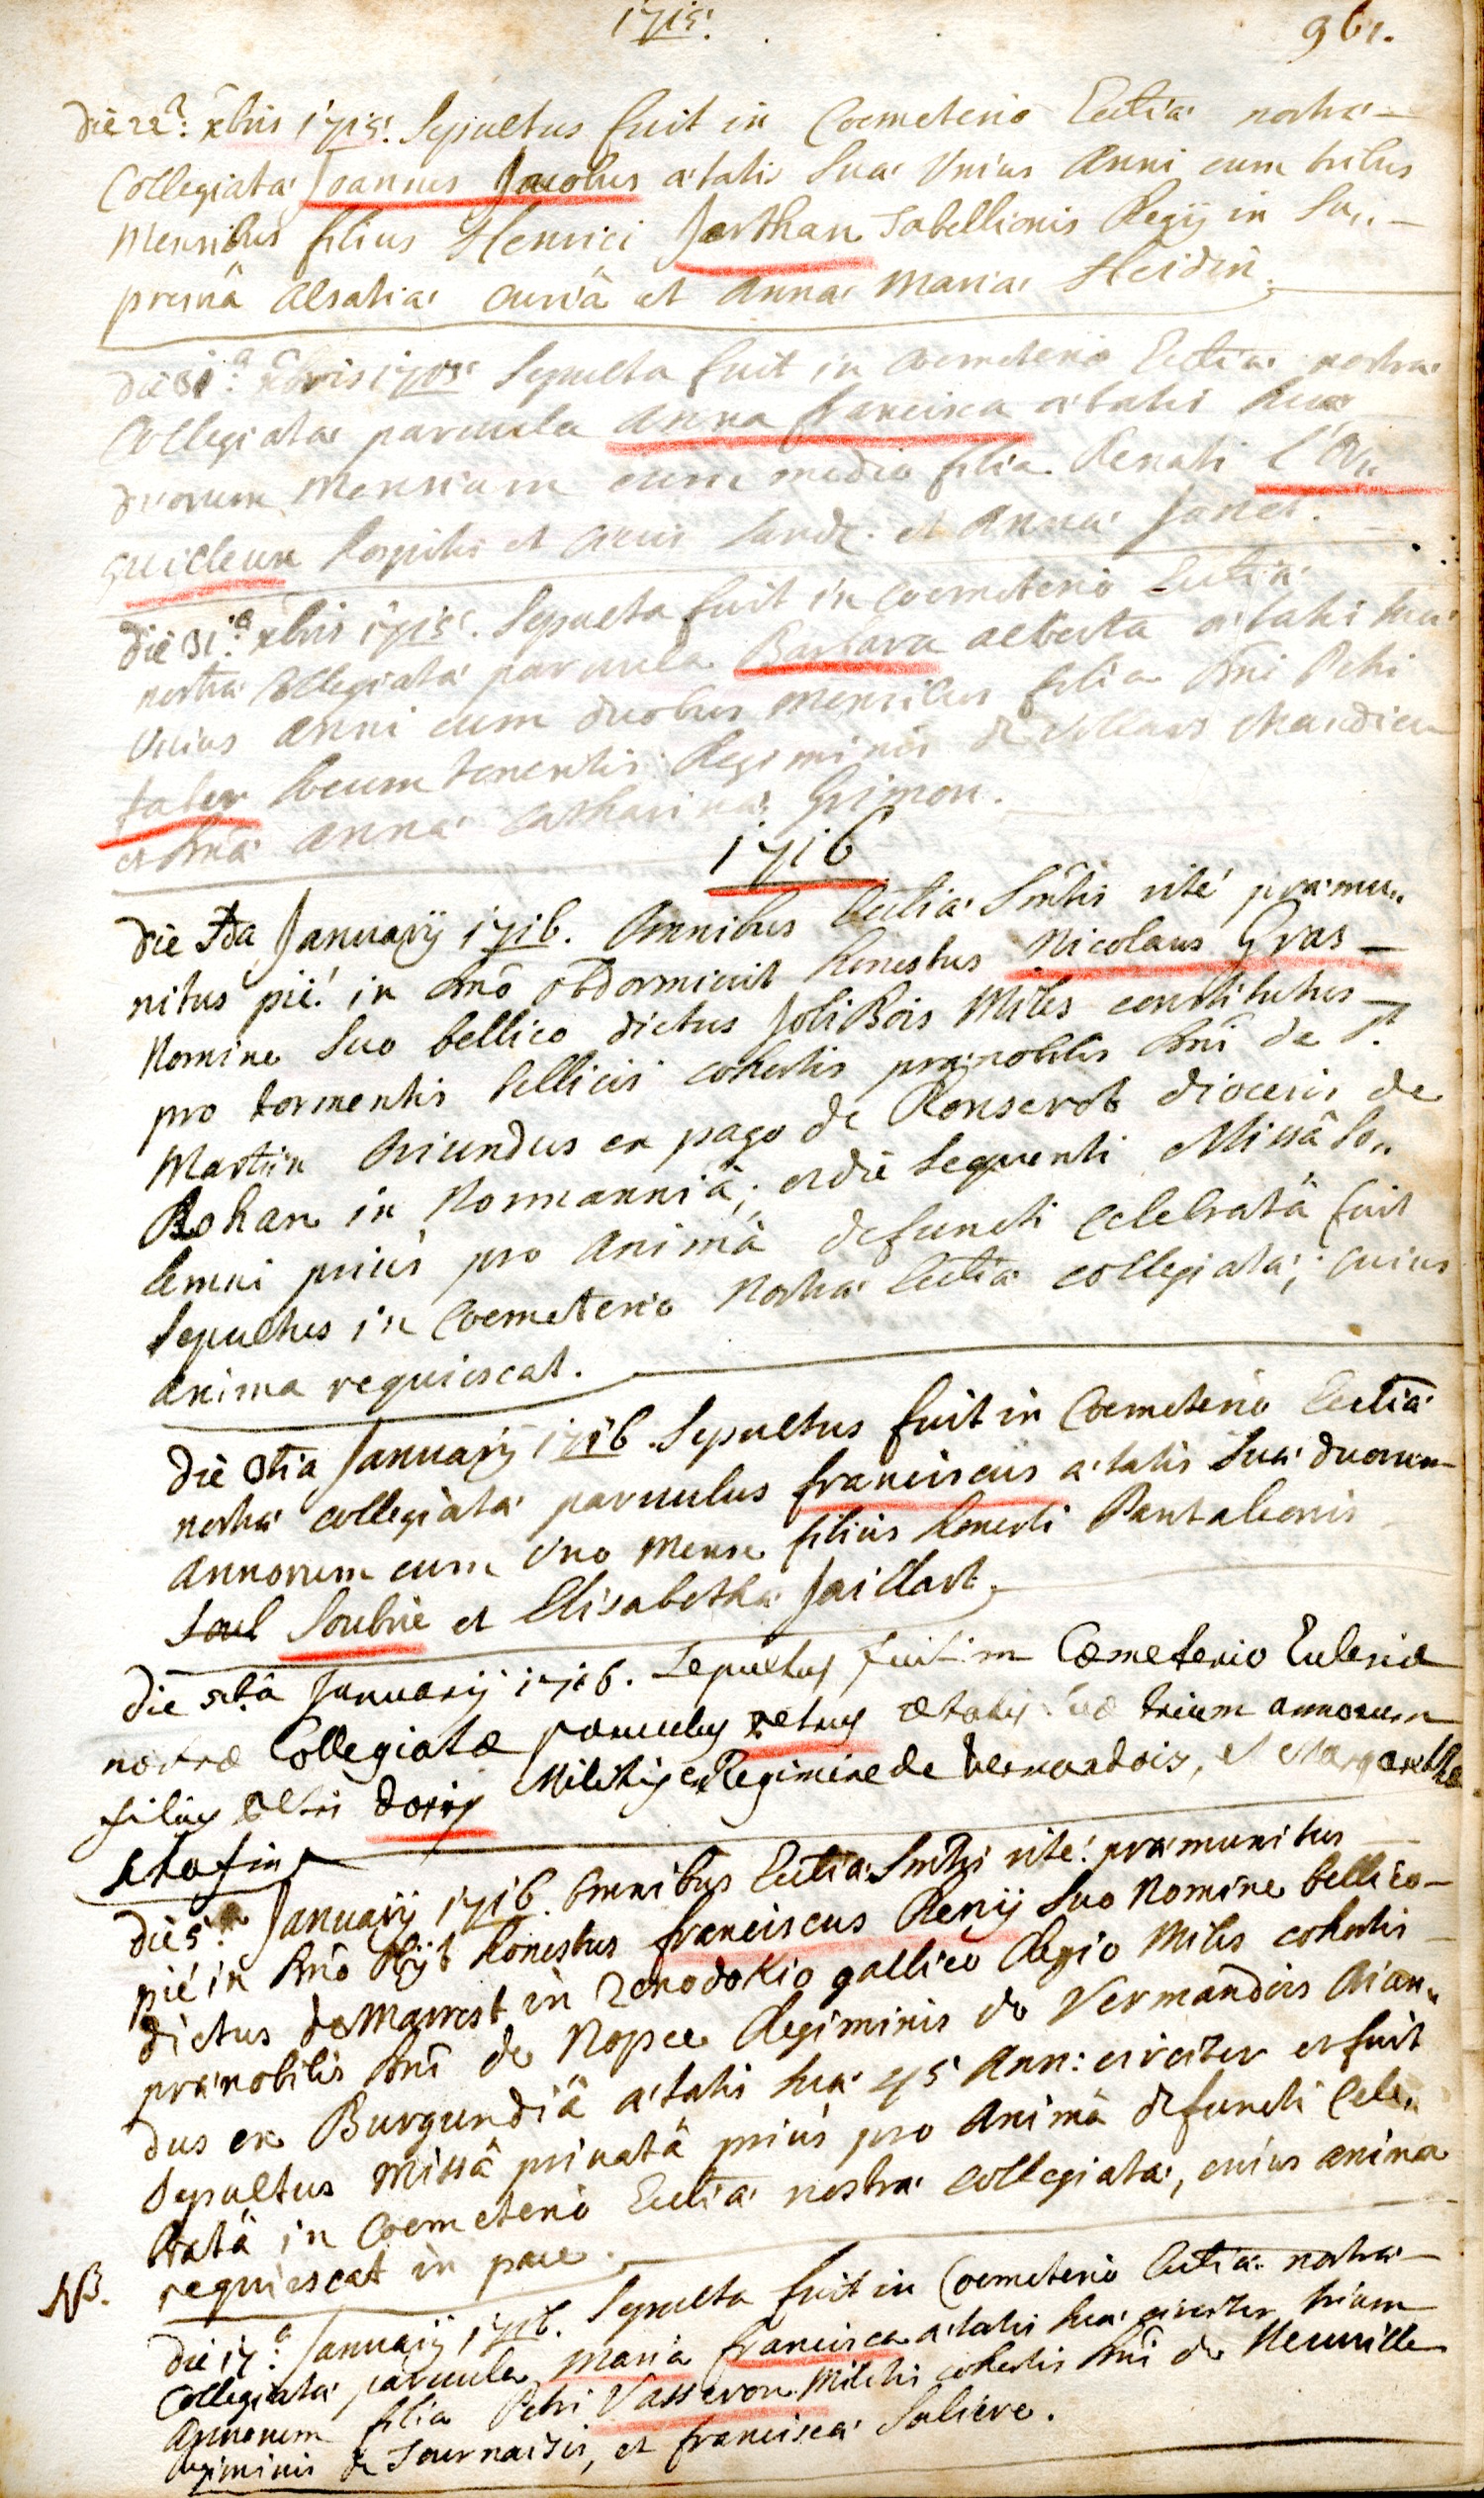 1715.
961.
die 22ª: xbris 1715. Sepultus fuit in Coemeterio Eccliæ nostræ
Collegiatæ Joannes Jacobus ætatis Suæ Unius Anni cum tribus
Mensibus filius Henrici Jarthan Tabellionis Regij in Su,,
premâ Alsatiæ Curiâ et Annæ Mariæ Heidin.
die 31ª: xbris 1715. Sepulta fuit in Coemeterio Eccliæ nostræ
Collegiatæ parvula Anna francisca ætatis Suæ
duorum Mensium cum medio filia Renati l'An,,
guilleur hospitis et Civis Land: et Annæ Janet.
die 31ª: xbris 1715. Sepulta fuit in Coemeterio Eccliæ
nostræ Collegiatæ parvula Barbara alberta ætatis suæ
Unius Anni cum duobus Mensibus filia dni Petri
faber locum tenentis Regiminis de Villars Chandieu
et dnæ Annæ Catharinæ Grimon.
1716
die 2da Januarij 1716. Omnibus Eccliæ Smtis ritè præmu,,
nitus piè in dno obdormivit honestus Nicolaus Gras
Nomine Suo bellico dictus Joli Bois Miles constitutus
pro tormentis bellicis cohortis prænobilis dni de St.
Martin Oriundus ex pago de Ronserot dioecesis de
Rohan in Normanniâ; et die Sequenti Missâ So,,
lemni priùs pro Animâ defuncti celebratâ fuit
Sepultus in Coemeterio Nostræ Eccliæ collegiatæ; cuius
anima requiescat.
die 3tia Januarij 1716. Sepultus fuit in Coemeterio Eccliæ
nostræ collegiatæ parvulus franciscus ætatis Suæ duorum
Annorum cum Uno Mense filius honesti Pantaleonis
Soul Soubrie et Elisabethæ Jaillart.
die 5tâ Januarij 1716. Sepultus fuit in Coemeterio Eclesiæ
nostræ Collegiatæ parvulus petrus ætatis suæ trium annorum
filius Petri Dorij Militis ex Regimine de Vermandois, et Margarethæ
Stafin
die 5ª Januarij 1716. Omnibus Eccliæ Smtis ritè præmunitus
piè in dno Obijt honestus franciscus Renij Suo Nomine bellico
dictus demarest in Zenodokio gallico Regio Miles cohortis
prænobilis dni de Nopce Regiminis de Vermandois Oriun,,
dus ex Burgundiâ ætatis suæ 45 Ann: circiter et fuit
Sepultus Missâ privatâ priùs pro Animâ defuncti Cele,,
bratâ in Coemeterio Eccliæ nostræ collegiatæ, cuius anima
requiescat in pace.
NB.
die 17ª: Januarij 1716. Sepulta fuit in Coemeterio Eccliæ nostræ
Collegiatæ parvula Maria francisca ætatis suæ circiter trium
Annorum filia Petri Vasseron Militis cohortis dni de Neuville
Regiminis de Tournaisis, et franciscæ Saliere.